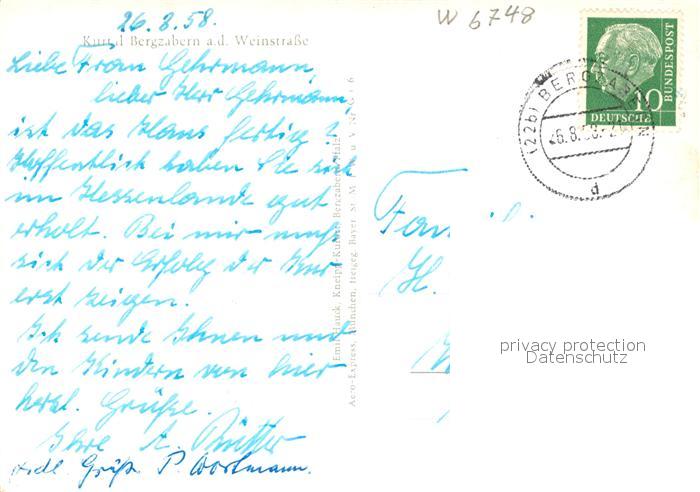 26.8.58.
W 6748
Kurtal Bergzabern a.d. Weinstraße
Liebe Frau Gehrmann,
lieber Herr Gehrmann,
ist das Haus fertig?
Hoffentlich haben Sie sich
im Hessenlande gut
erholt. Bei mir muß
sich der Erfolg der Kur
erst zeigen.
Ich sende Ihnen und
den Kindern von hier
herzl. Grüße.
Ihre A.
frdl. Grüße P. Wortmann.
Emil Hauck, Kneipp-Kurort Bergzabern/Pfalz
Aero-Express, München, freigeg. Bayer. St. M.
BUNDESPOST
10
DEUTSCHE
(22b) BERGZABERN
26.8.58
d
Fam
H.
privacy protection
Datenschutz